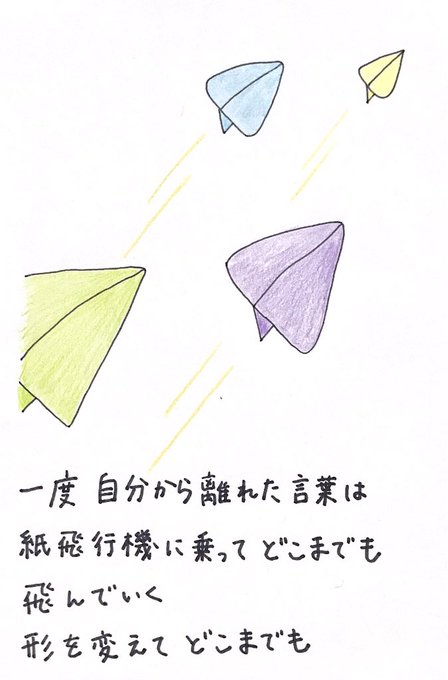 一度 自分から離れた言葉は
紙飛行機に乗って どこまでも
飛んでいく
形を変えて どこまでも